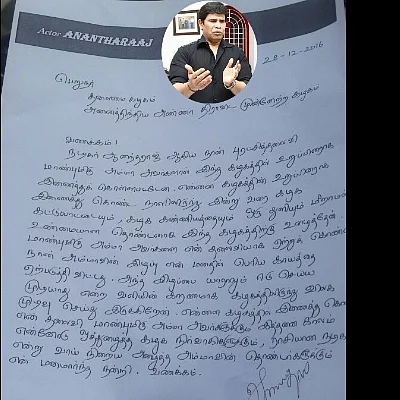 Actor ANANTHARAAJ
28-12-2016
பெறுநர்
தலைமை கழகம்
அனைத்திந்திய அண்ணா திராவிட முன்னேற்ற கழகம்
வணக்கம்!
நடிகர் ஆனந்தராஜ் ஆகிய நான் புரட்சித்தலைவி
மாண்புமிகு அம்மா அவர்களால் இந்த கழகத்தின் உறுப்பினராக
இணைத்துக் கொள்ளப்பட்டேன். என்னை கழகத்தின் உறுப்பினராக
இணைத்து கொண்ட நாளிலிருந்து இன்று வரை கழக
கட்டுப்பாட்டையும், கழக கண்ணியத்தையும் துளியும்
உண்மையான தொண்டனாக இந்த கழகத்திற்கு உழைத்தேன்.
மாண்புமிகு அம்மா அவர்களை என் தலைவியாக ஏற்றுக் கொண்ட
நான் அம்மாவின் இழப்பு என் மனதில் பெரிய காயத்தை
ஏற்படுத்தி விட்டது. அந்த இழப்பை யாராலும் ஈடு செய்ய
முடியாது என்ற வலியின் காரணமாக கழகத்திலிருந்து விலக
முடிவு செய்து இருக்கிறேன். என்னை கழகத்தில் இணைத்த
என் தலைவி மாண்புமிகு அம்மா அவர்களுக்கும் இத்தனை காலம்
என்னோடு ஒத்துழைத்த கழக நிர்வாகிகளுக்கும்,
என்று வாய் நிறைய அழைத்த அம்மாவின் தொண்டர்களுக்கும்
என் மனமார்ந்த நன்றி. வணக்கம்.